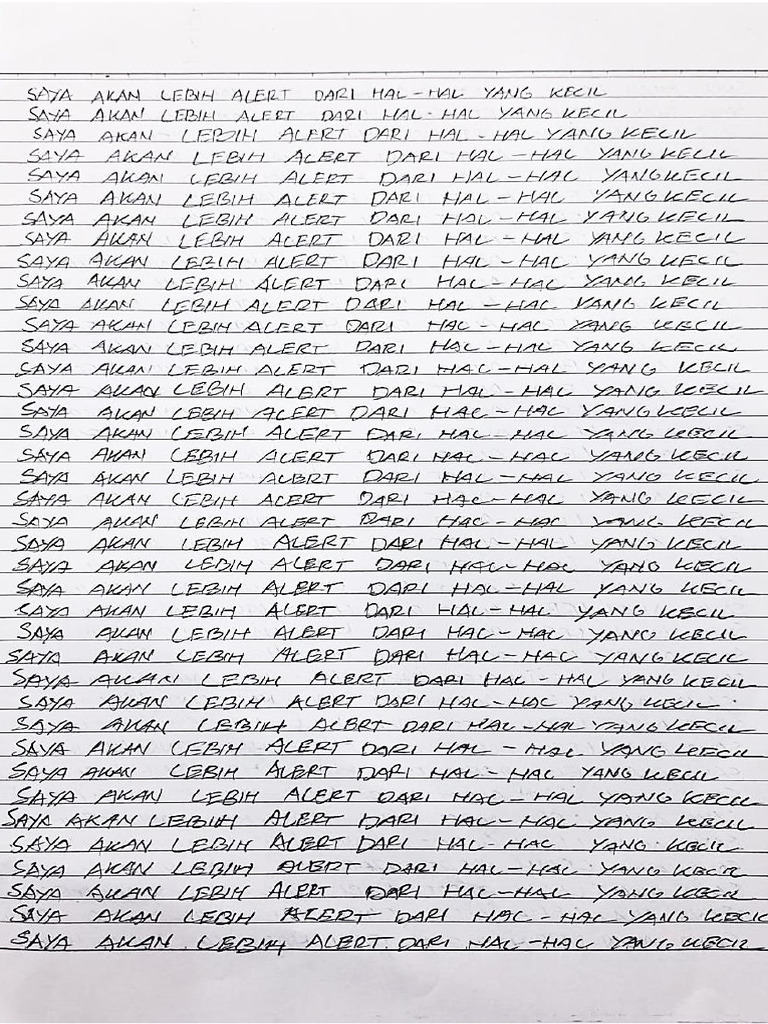 SAYA AKAN LEBIH ALERT DARI HAL-HAL YANG KECIL
SAYA AKAN LEBIH ALERT DARI HAL-HAL YANG KECIL
SAYA AKAN LEBIH ALERT DARI HAL-HAL YANG KECIL
SAYA AKAN LEBIH ALERT DARI HAL-HAL YANG KECIL
SAYA AKAN LEBIH ALERT DARI HAL-HAL YANG KECIL
SAYA AKAN LEBIH ALERT DARI HAL-HAL YANG KECIL
SAYA AKAN LEBIH ALERT DARI HAL-HAL YANG KECIL
SAYA AKAN LEBIH ALERT DARI HAL-HAL YANG KECIL
SAYA AKAN LEBIH ALERT DARI HAL-HAL YANG KECIL
SAYA AKAN LEBIH ALERT DARI HAL-HAL YANG KECIL
SAYA AKAN LEBIH ALERT DARI HAL-HAL YANG KECIL
SAYA AKAN LEBIH ALERT DARI HAL-HAL YANG KECIL
SAYA AKAN LEBIH ALERT DARI HAL-HAL YANG KECIL
SAYA AKAN LEBIH ALERT DARI HAL-HAL YANG KECIL
SAYA AKAN LEBIH ALERT DARI HAL-HAL YANG KECIL
SAYA AKAN LEBIH ALERT DARI HAL-HAL YANG KECIL
SAYA AKAN LEBIH ALERT DARI HAL-HAL YANG KECIL
SAYA AKAN LEBIH ALERT DARI HAL-HAL YANG KECIL
SAYA AKAN LEBIH ALERT DARI HAL-HAL YANG KECIL
SAYA AKAN LEBIH ALERT DARI HAL-HAL YANG KECIL
SAYA AKAN LEBIH ALERT DARI HAL-HAL YANG KECIL
SAYA AKAN LEBIH ALERT DARI HAL-HAL YANG KECIL
SAYA AKAN LEBIH ALERT DARI HAL-HAL YANG KECIL
SAYA AKAN LEBIH ALERT DARI HAL-HAL YANG KECIL
SAYA AKAN LEBIH ALERT DARI HAL-HAL YANG KECIL
SAYA AKAN LEBIH ALERT DARI HAL-HAL YANG KECIL
SAYA AKAN LEBIH ALERT DARI HAL-HAL YANG KECIL
SAYA AKAN LEBIH ALERT DARI HAL-HAL YANG KECIL
SAYA AKAN LEBIH ALERT DARI HAL-HAL YANG KECIL
SAYA AKAN LEBIH ALERT DARI HAL-HAL YANG KECIL
SAYA AKAN LEBIH ALERT DARI HAL-HAL YANG KECIL
SAYA AKAN LEBIH ALERT DARI HAL-HAL YANG KECIL
SAYA AKAN LEBIH ALERT DARI HAL-HAL YANG KECIL
SAYA AKAN LEBIH ALERT DARI HAL-HAL YANG KECIL
SAYA AKAN LEBIH ALERT DARI HAL-HAL YANG KECIL
SAYA AKAN LEBIH ALERT DARI HAL-HAL YANG KECIL
SAYA AKAN LEBIH ALERT DARI HAL-HAL YANG KECIL
SAYA AKAN LEBIH ALERT DARI HAL-HAL YANG KECIL
SAYA AKAN LEBIH ALERT DARI HAL-HAL YANG KECIL